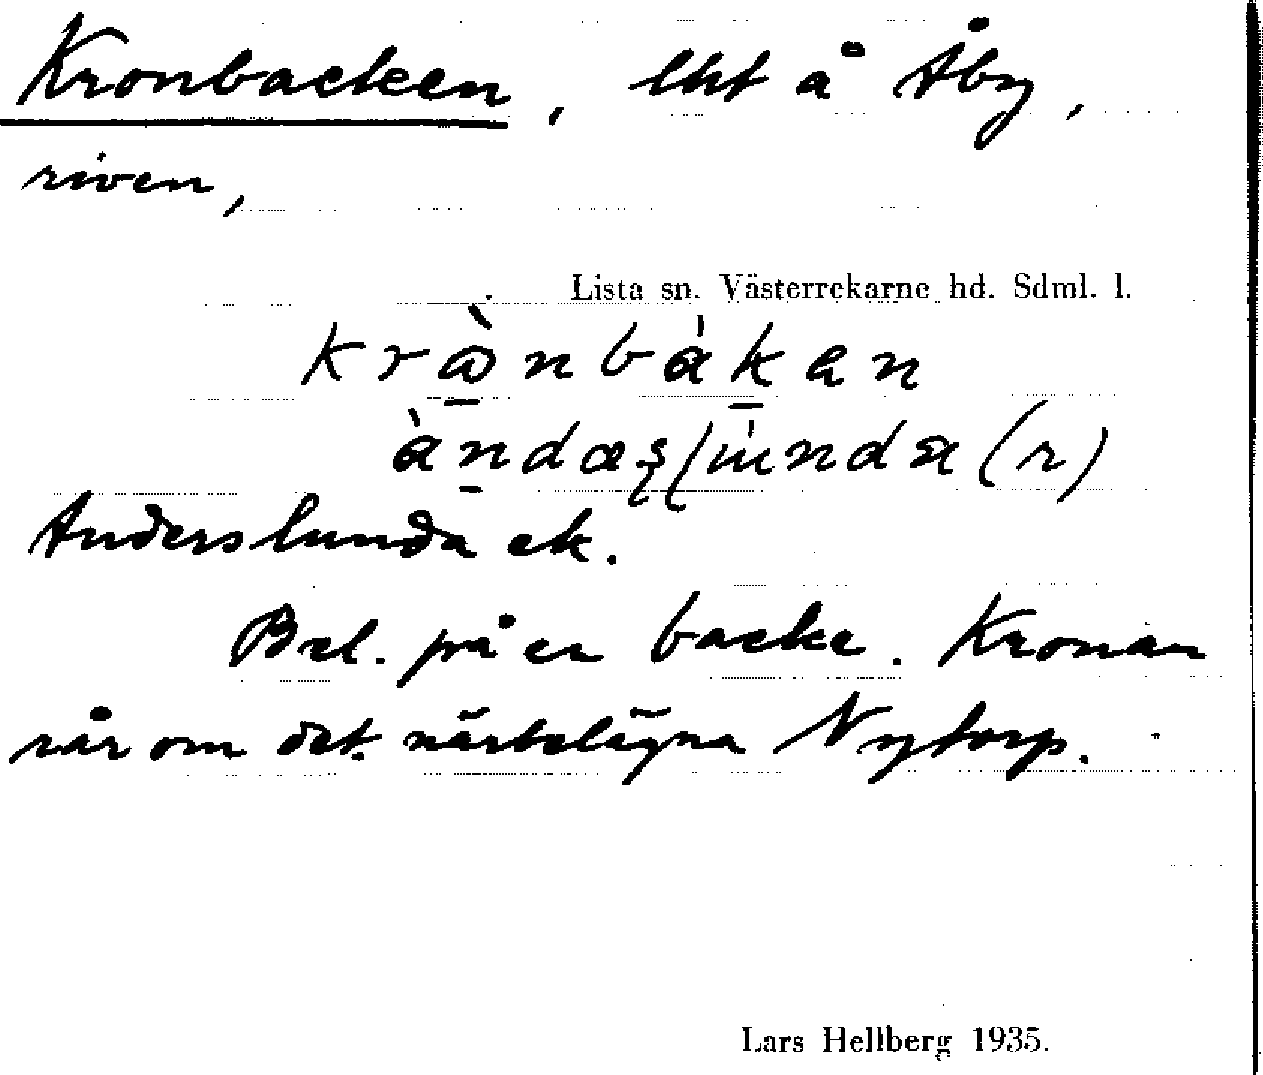 Kronbacken, lht å Åby,
riven,
Lista sn. Västerrekarne hd. Sdml. l.
Anderslunda ek.
Bel. på en backe. Kronan
rår om det närbelägna Nytorp.
Lars Hellberg 1935.